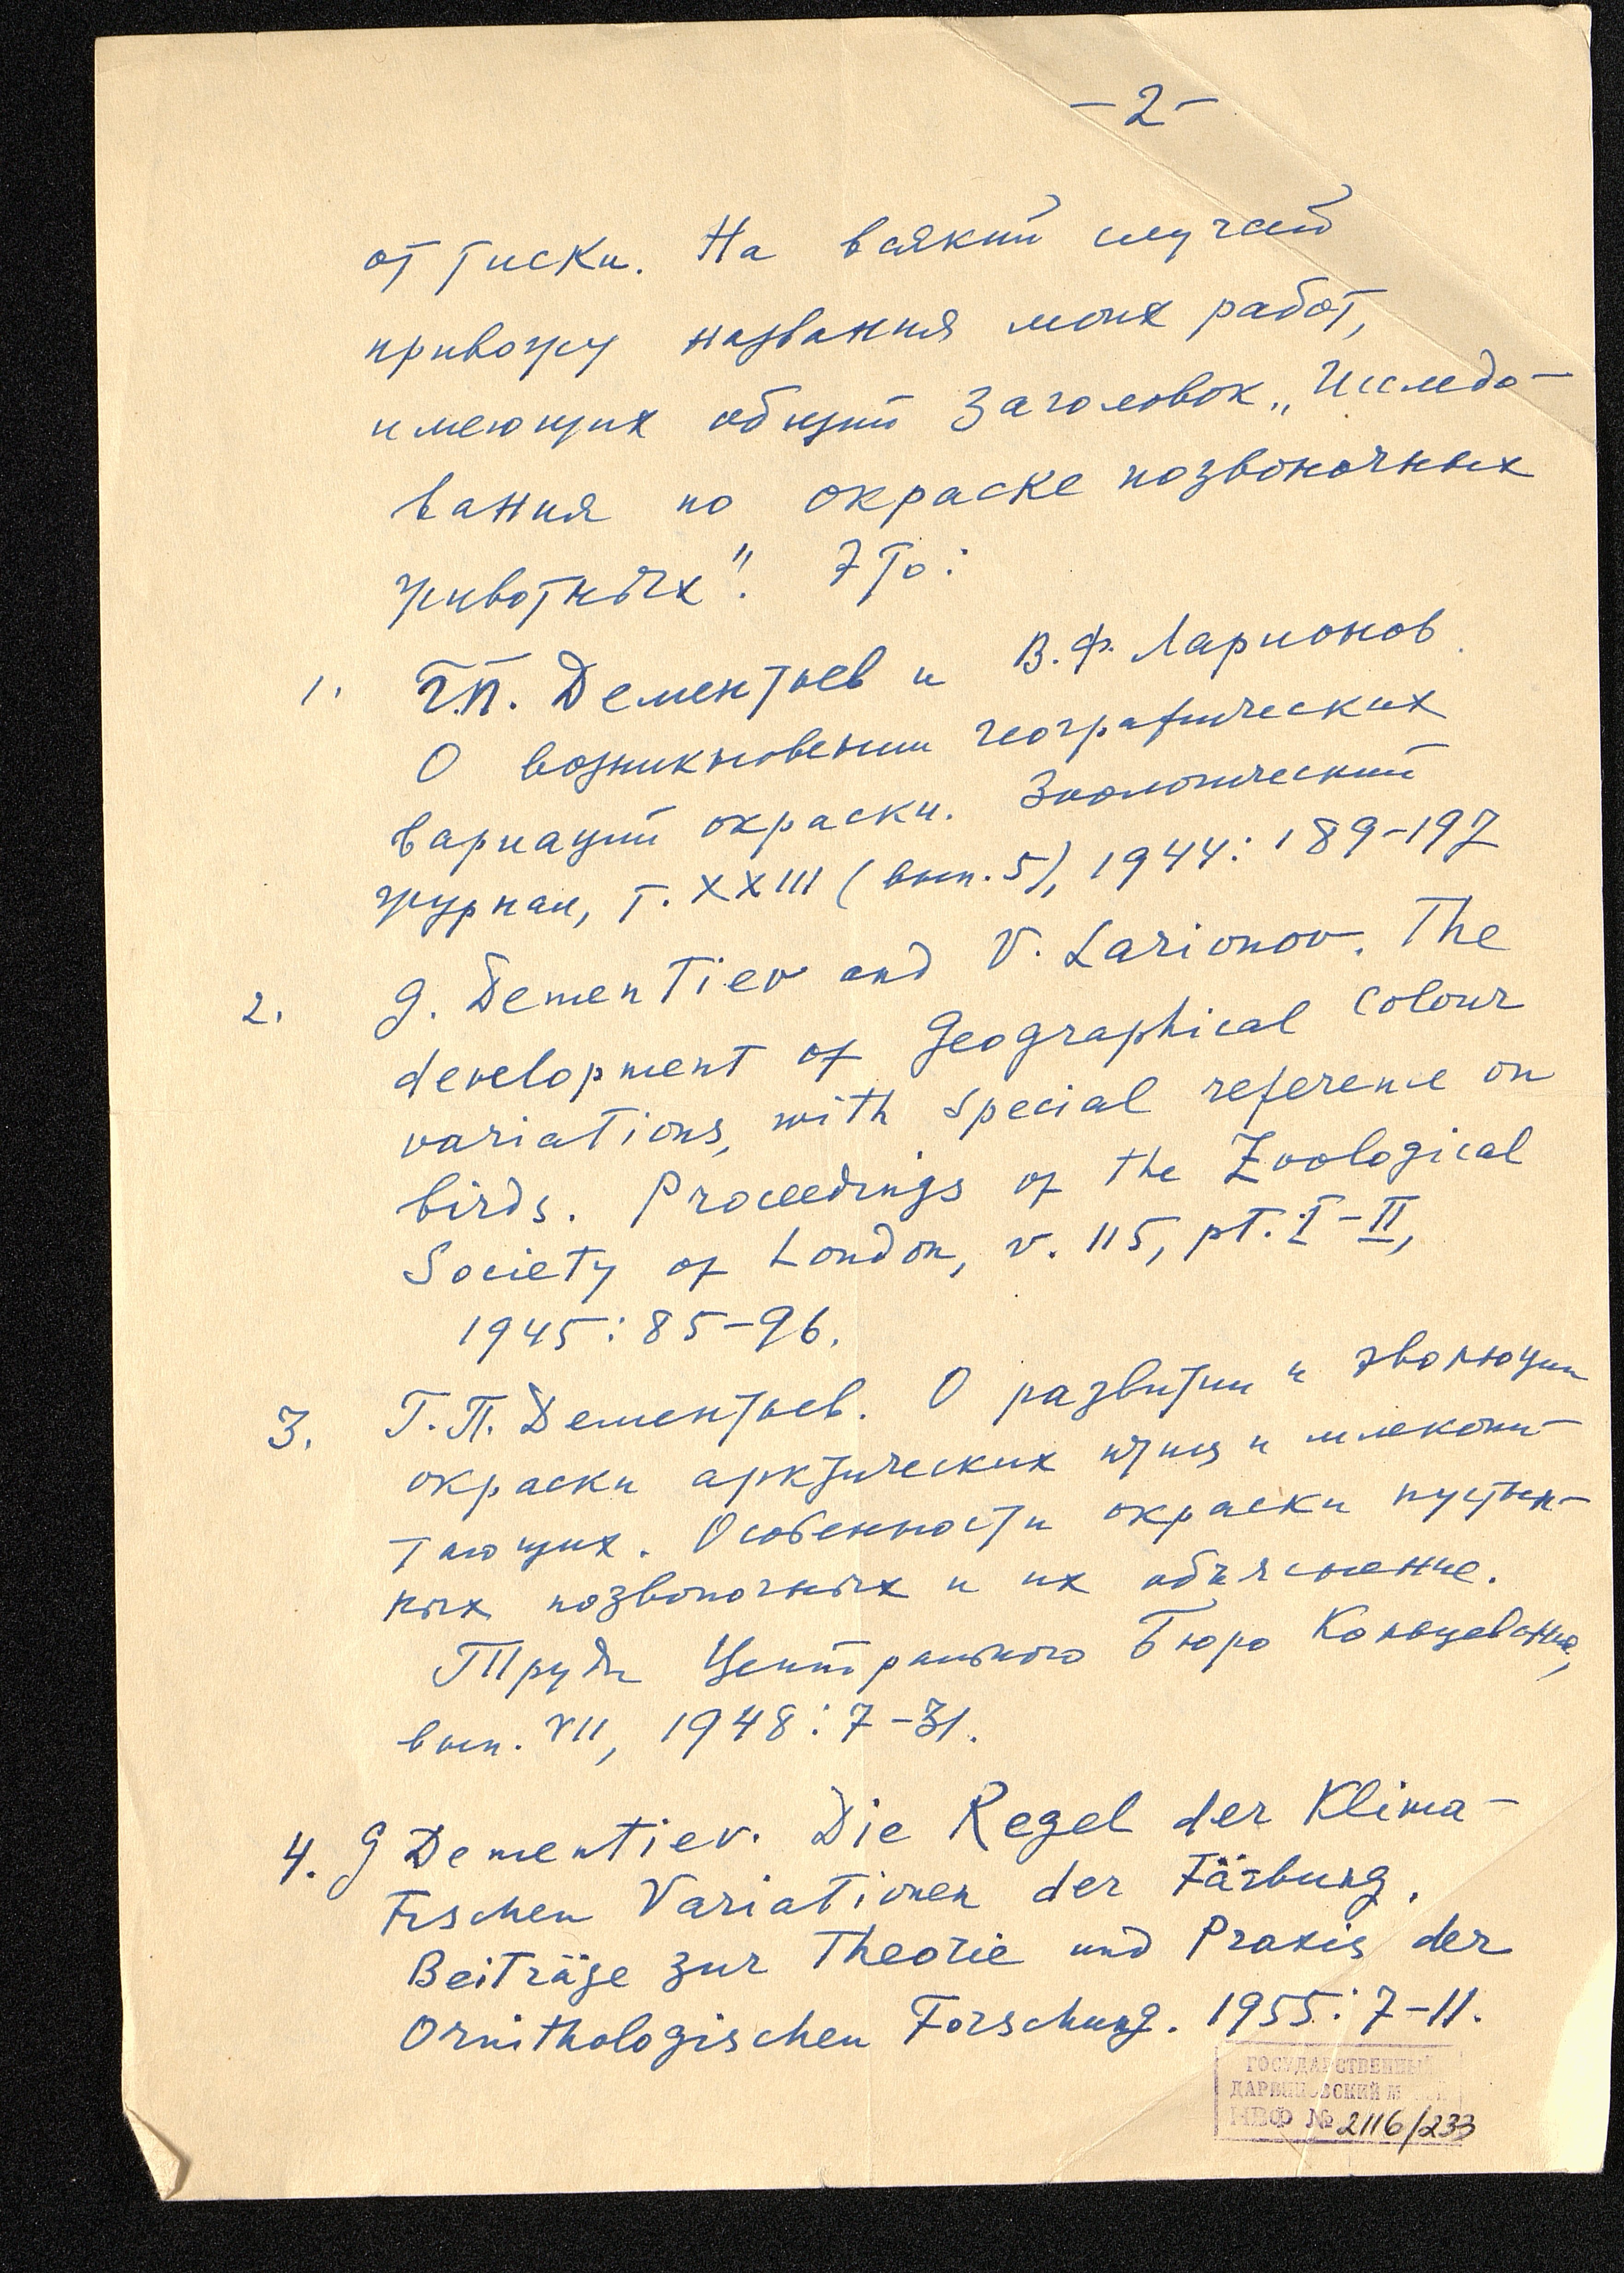 -2-
оттиски. На всякий случай
привожу названия моих работ,
имеющих общий заголовок „Исследо-
вания по окраске позвоночных
животных". Это:
1. Г.П. Дементьев и В.Ф. Ларионов.
О возникновении географических
вариаций окраски. Зоологический
журнал, т. XXIII (вып. 5), 1944: 189-197
2. G. Dementiev and V. Larionov. The
development of Geographical Colour
variations, with special reference on
birds. Proceedings of the Zoological
Society of London, v. 115, pt. I-II,
1945: 85-96.
3. Г.П. Дементьев. О развитии и эволюции
окраски арктических птиц и млекопи-
тающих. Особенности окраски пустын-
ных позвоночных и их объяснение.
Труды Центрального Бюро Кольцевания,
вып. VII, 1948: 7-31.
4. G Dementiev. Die Regel der Klima-
tischen Variationen der Färbung.
Beiträge zur Theorie und Praxis der
Ornithologischen Forschung. 1955: 7-11.
ГОСУДАРСТВЕННЫЙ
ДАРВИНОВСКИЙ М
НВФ № 2116/233